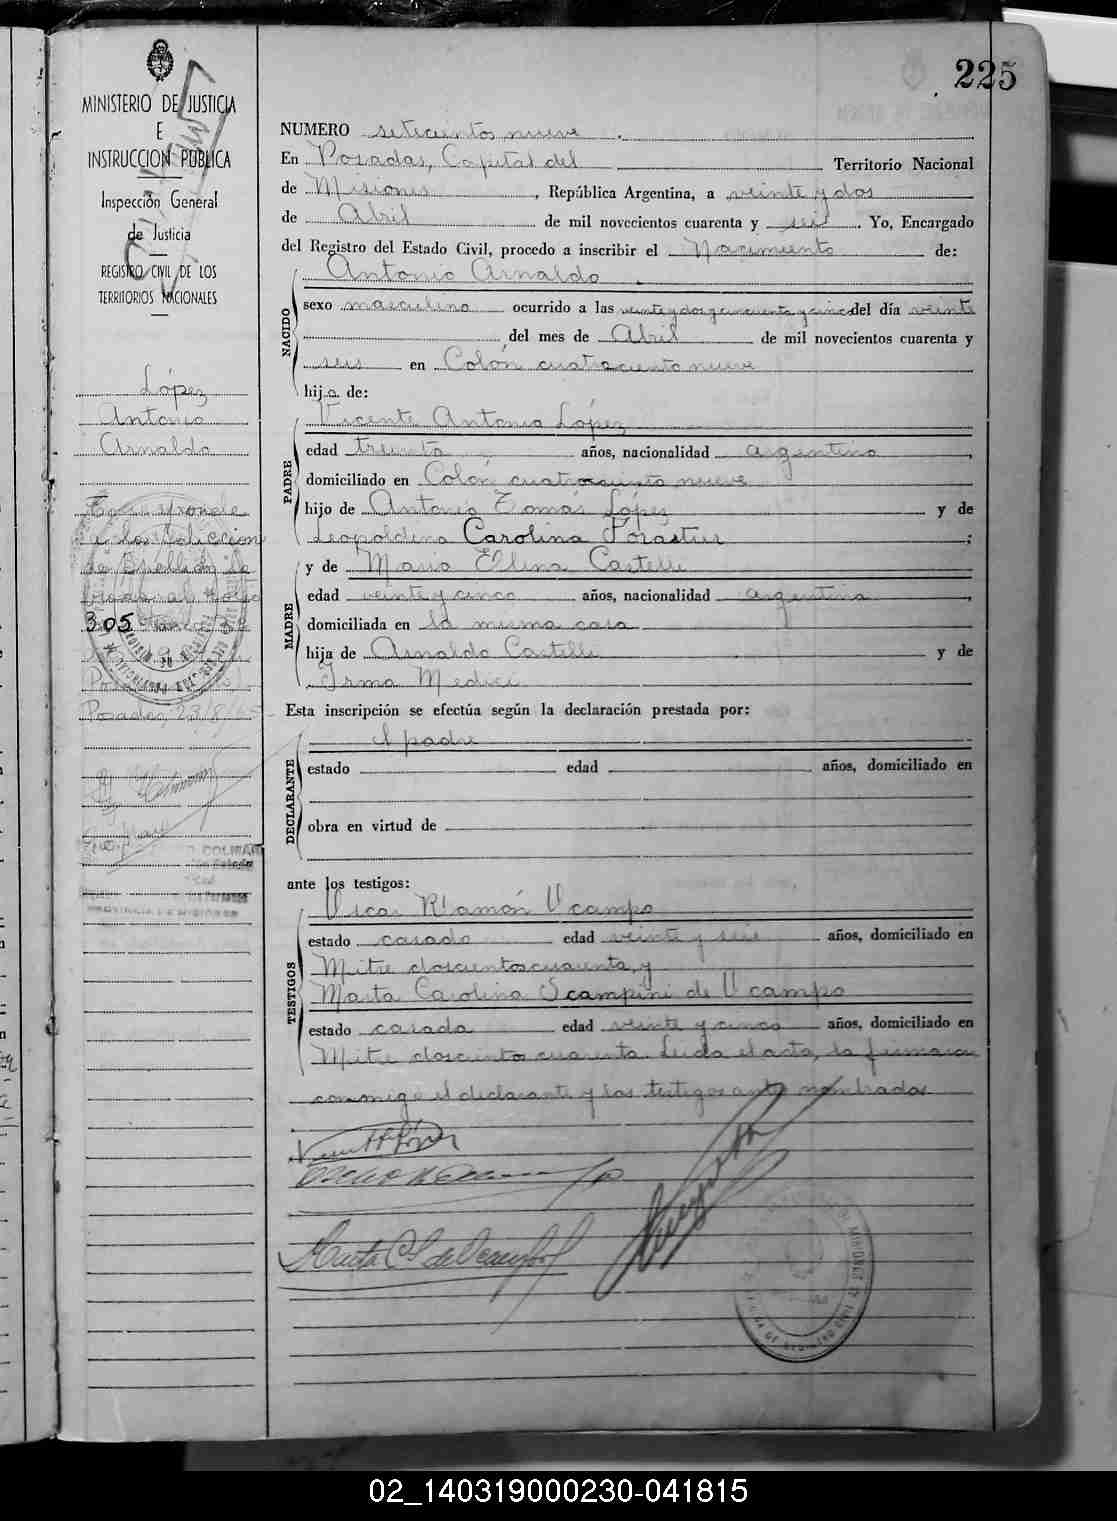 225
MINISTERIO DE JUSTICIA
E
INSTRUCCION PUBLICA
Inspección General
de Justicia
REGISTRO CIVIL DE LOS
TERRITORIOS NACIONALES
López
Antonio
Arnaldo
305
Posadas, 23/8/65
NUMERO setecientos nueve
En Posadas, Capital del Territorio Nacional
de Misiones, República Argentina, a veinte y dos
de Abril de mil novecientos cuarenta y seis. Yo, Encargado
del Registro del Estado Civil, procedo a inscribir el Nacimiento de:
NACIDO
Antonio Arnaldo
sexo masculino ocurrido a las veinte y dos y cincuenta y cinco del día veinte
del mes de Abril de mil novecientos cuarenta y
seis en Colón cuatrocientos nueve
hijo de:
PADRE
Vicente Antonio López
edad treinta años, nacionalidad argentino,
domiciliado en Colón cuatrocientos nueve
hijo de Antonio Tomás López y de
Leopoldina Carolina Forastier;
y de María Elena Castelli
MADRE
edad veinte y cinco años, nacionalidad argentina,
domiciliada en la misma casa
hija de Arnaldo Castelli y de
Irma Medici
Esta inscripción se efectúa según la declaración prestada por:
DECLARANTE
el padre
estado edad años, domiciliado en
obra en virtud de
ante los testigos:
TESTIGOS
Oscar Ramón Ocampo
estado casado edad veinte y seis años, domiciliado en
Mitre doscientos cuarenta, y
Marta Carolina Scampini de Ocampo
estado casada edad veinte y cinco años, domiciliado en
Mitre doscientos cuarenta. Leída el acta, la firmaron
conmigo el declarante y los testigos antes nombrados
02_140319000230-041815